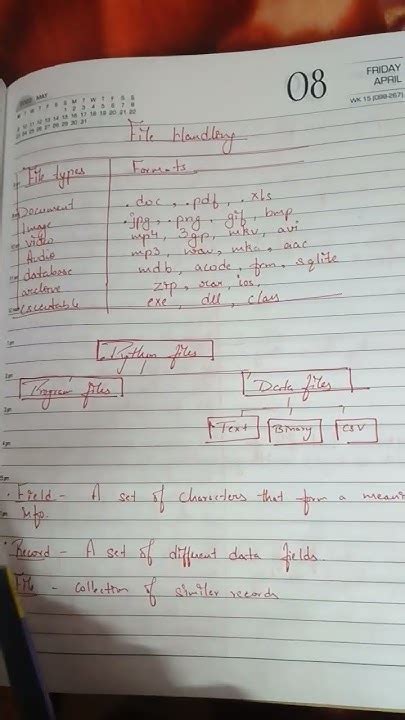 MAY
M T W T F S S
08
FRIDAY
APRIL
WK 15 (098-267)
File Handling
File types Formats
Document .doc, .pdf, .xls
Image .jpg, .png, gif, bmp
Video mp4, 3gp, mkv, avi
Audio mp3, wav, mka, aac
database mdb, acode, frm, sqlite
archive zip, rar, ios,
executable exe, dll, class
Python files
Program files Data files
Text Binary CSV
Field - A set of characters that form a
info.
Record - A set of different data fields.
File - collection of similer records